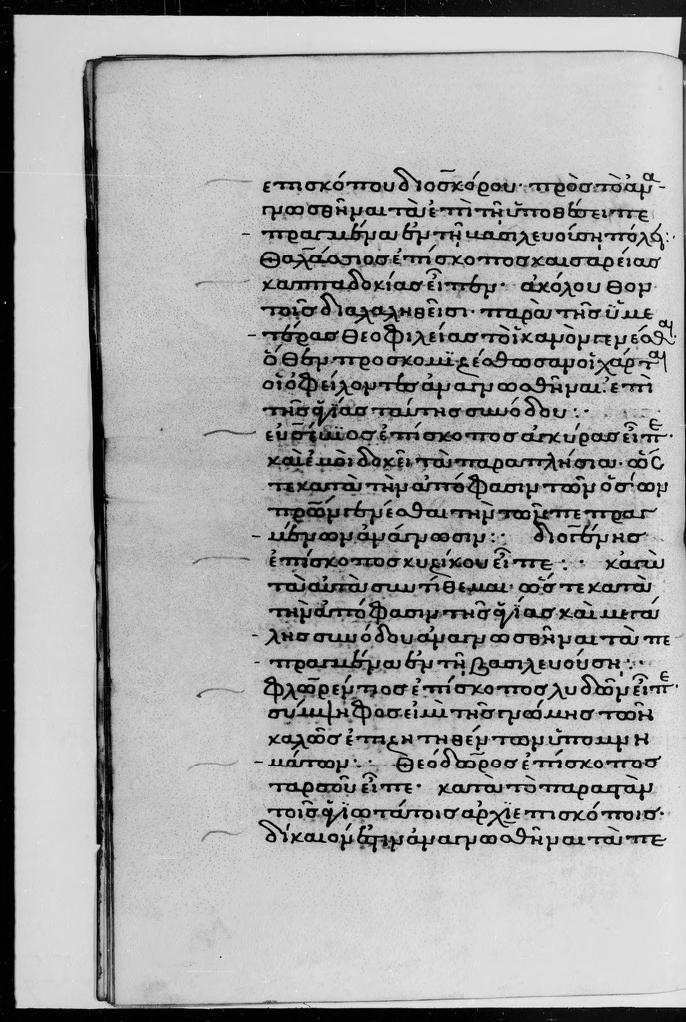 ἐπισκόπου διοσκόρου· πρὸς τὸ ἀνα
γνωσθῆναι τὰ ἐπὶ τῆ ὑποθέσει πε
πραγμένα ἐν τῆ βασιλευούση πόλει:
Θαλάσσιος ἐπίσκοπος καισαρείας
καππαδοκίας εἶπεν· ἀκόλουθον
τοῖς διαλαληθεῖσι παρὰ τῆς ὑμε
τέρας θεοφιλείας τὸ ἱκανὸν γενέσθαι
ὅθεν προσκομιζέσθωσαν οἱ χάρται
οἱ ὀφείλοντες ἀναγνωσθῆναι ἐπὶ
τῆς ἁγίας ταύτης συνόδου:
εὐσέβιος ἐπίσκοπος ἀγκύρας εἶπε·
καὶ ἐμοὶ δοκεῖ τὰ παραπλήσια· ὥσ
τε κατὰ τὴν ἀπόφασιν τῶν ὁσίων
πρῶν γενέσθαι τὴν τῶν πεπραγ
μένων ἀνάγνωσιν: διογένης
ἐπίσκοπος κυζίκου εἶπε: κἀγὼ
τὰ αὐτὰ συντίθεμαι· ὥστε κατὰ
τὴν ἀπόφασιν τῆς ἁγίας καὶ μεγά
λης συνόδου ἀναγνωσθῆναι τὰ πε
πραγμένα ἐν τῆ βασιλευούση:
φλωρέντιος ἐπίσκοπος λυδῶν εἶπε
σύμψηφος εἰμὶ τῆς γνώμης τῶν
καλῶς ἐπιζητηθέντων ὑπομνη
μάτων: Θεόδωρος ἐπίσκοπος
ταρσοῦ εἶπε· κατὰ τὸ παραστὰν
τοῖς ἁγιωτάτοις ἀρχιεπισκόποις·
δίκαιόν ἐστιν ἀναγνωσθῆναι τὰ πε